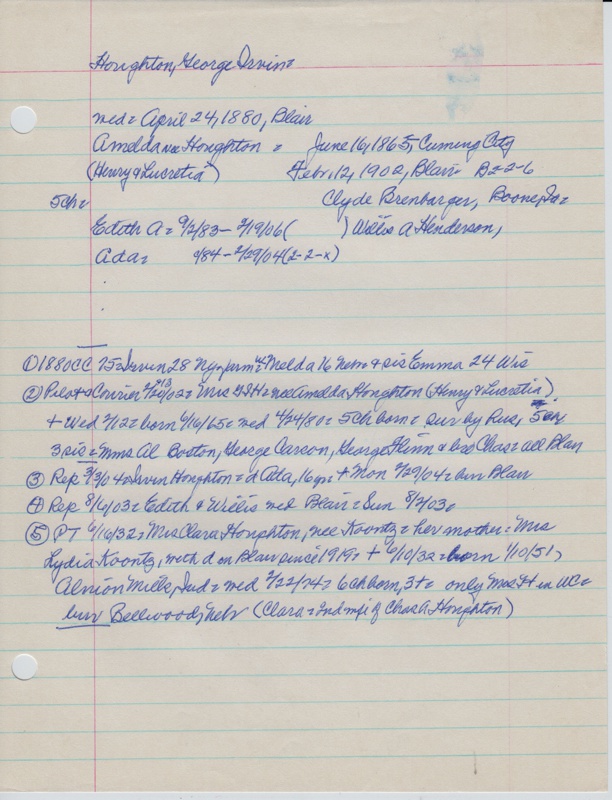 Houghton, George Irvin=
med= April 24, 1880, Blair
Amelda nee Houghton = June 16, 1865, Cuming City
(Henry & Lucretia) Febr. 12, 1902, Blair= B=2-6
5ch= Clyde Brenbarger, Boone, Ia=
Edith A= 9/2/83- 2/19/06( ) Willis A Henderson,
Ada= /84 - 2/29/04(2-2-x)
① 1880CC 75= Irvin 28 Ny=farm= Melda 16 Nebr & sis Emma 24 Wis
② Pilot & Courier 2/02= Mrs GIH= nee Amelda Houghton (Henry & Lucretia)
+ Wed 2/12= born 6/16/65= med 4/24/80= 5ch born= sur by hus, 5ch
3 sis= Mmes Al Boston, George Carson, George Flinn & bro Chas= all Blair
③ Rep 3/3/04= Irvin Houghton= d Ada, 16yr= + Mon 2/29/04= bur Blair
④ Rep 8/6/03= Edith & Willis med Blair= Sun 8/2/03=
⑤ PT 6/16/32= Mrs Clara Houghton, nee Koontz= her mother= Mrs
Lydia Koontz, with d on Blair since 1919= + 6/10/32= born 1/10/51,
Mills, Ind= med 2/22/74= 6ch born, 3+= only Mrs H in WC=
bur Bellwood, Nebr (Clara= 2nd wife of Chas A Houghton)